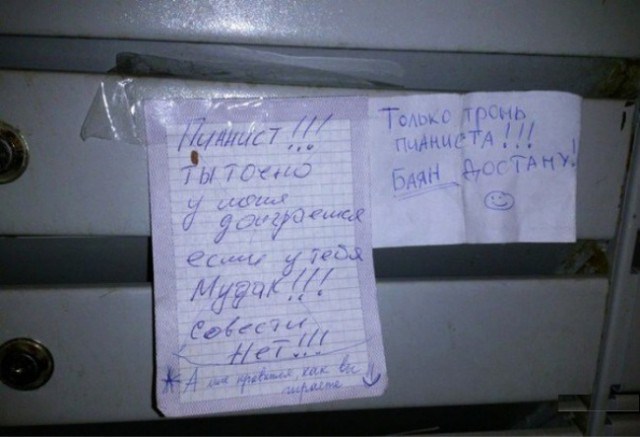 Пианист!!!
ты точно
у меня
доиграешся
если у тебя
Мудак!!!
совести
нет!!!
* А мне нравится, как вы
играете
Только тронь
пианиста!!!
Баян достану!